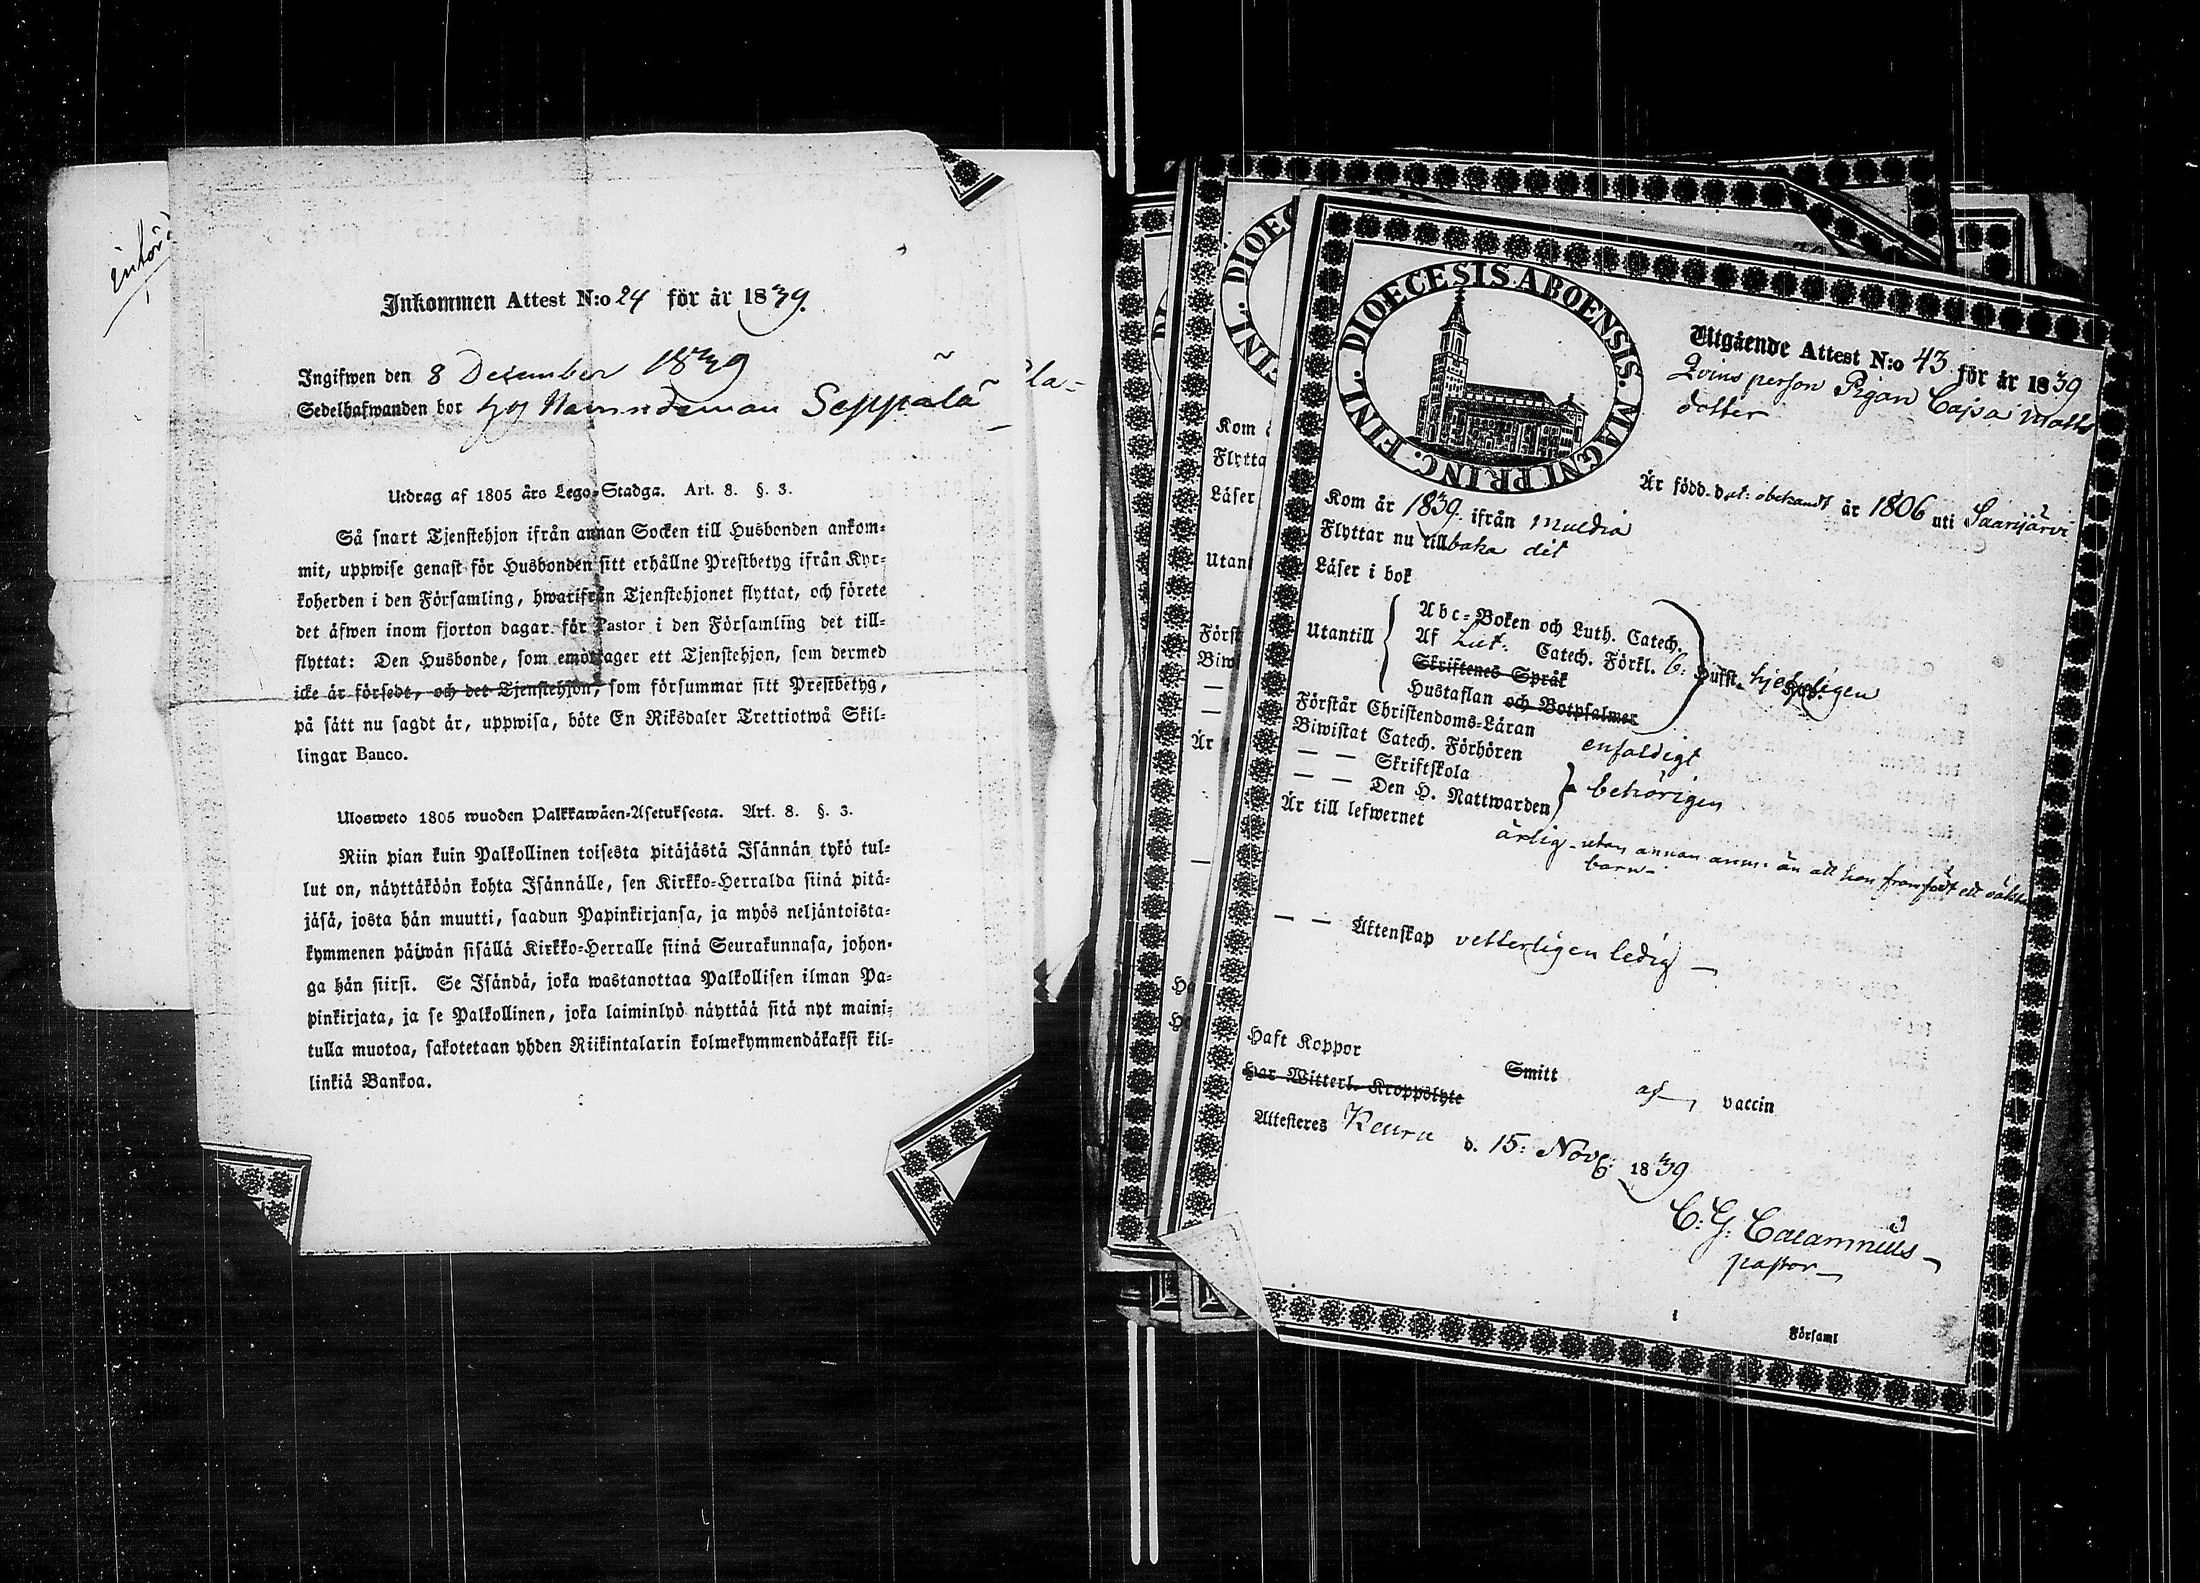 Inkommen Attest N:o 24 för år 1839.
Ingifwen den 8 December 1839
Sedelhafwanden bor hos Nämndeman Seppälä
Utdrag af 1805 års Lego-Stadga. Art. 8. §. 3.
Så snart Tjenstehjon ifrån annan Socken till Husbonden ankom-
mit, uppwise genast för Husbonden sitt erhållne Prestbetyg ifrån Kyr-
koherden i den Församling, hwarifrån Tjenstehjonet flyttat, och förete
det äfwen inom fjorton dagar för Pastor i den Församling det till-
flyttat: Den Husbonde, som emottager ett Tjenstehjon, som dermed
icke är försedt, och det Tjenstehjon, som försummar sitt Prestbetyg,
på sätt nu sagdt är, uppwisa, böte En Riksdaler Trettiotwå Skil-
lingar Banco.
Ulosweto 1805 wuoden Palkkawäen-Asetuksesta. Art. 8. §. 3.
Niin pian kuin Palkollinen toisesta pitäjästä Isännän tykö tul-
lut on, näyttäköön kohta Isännälle, sen Kirkko-Herralda siinä pitä-
jäsä, josta hän muutti, saadun Papinkirjansa, ja myös neljäntoista-
kymmenen päiwän sisällä Kirkko-Herralle siinä Seurakunnasa, johon-
ga hän siirsi. Se Isändä, joka wastanottaa Palkollisen ilman Pa-
pinkirjata, ja se Palkollinen, joka laiminlyö näyttää sitä nyt maini-
tulla muotoa, sakotetaan yhden Riikintalarin kolmekymmendäkaksi kil-
linkiä Bankoa.
DIOECESIS ABOENSIS. MAGNI PRINC. FINL.
Utgående Attest N:o 43 för år 1839
Qvins person Pigan Cajsa Matts
dotter
Är född dat: obekandt år 1806 uti Saarijärvi
Kom år 1839. ifrån Muldia
Flyttar nu tillbaka dit
Läser i bok
Utantill
Abc-Boken och Luth. Catech.
Af Lut. Catech. Förkl. b: Hufst. hjelpligen
Skriftenes Språk
Hustaflan och Botpsalmer
Förstår Christendoms-Läran enfaldigt
Biwistat Catech. Förhören
— — Skriftskola
— — Den H. Nattwarden behörigen
Är till lefwernet
ärlig utan annan anm: än att hon framfödt ett oäkta
barn
— — Äktenskap vetterligen ledig —
Haft Koppor Smitt af vaccin
Har Witterl. Kroppslyte
Attesteres Keuru d. 15: Nov: 1839
C: G: Calamnius
pastor
Församl
Kom
Flytta
Läser
Utant
Först
Biw
Är